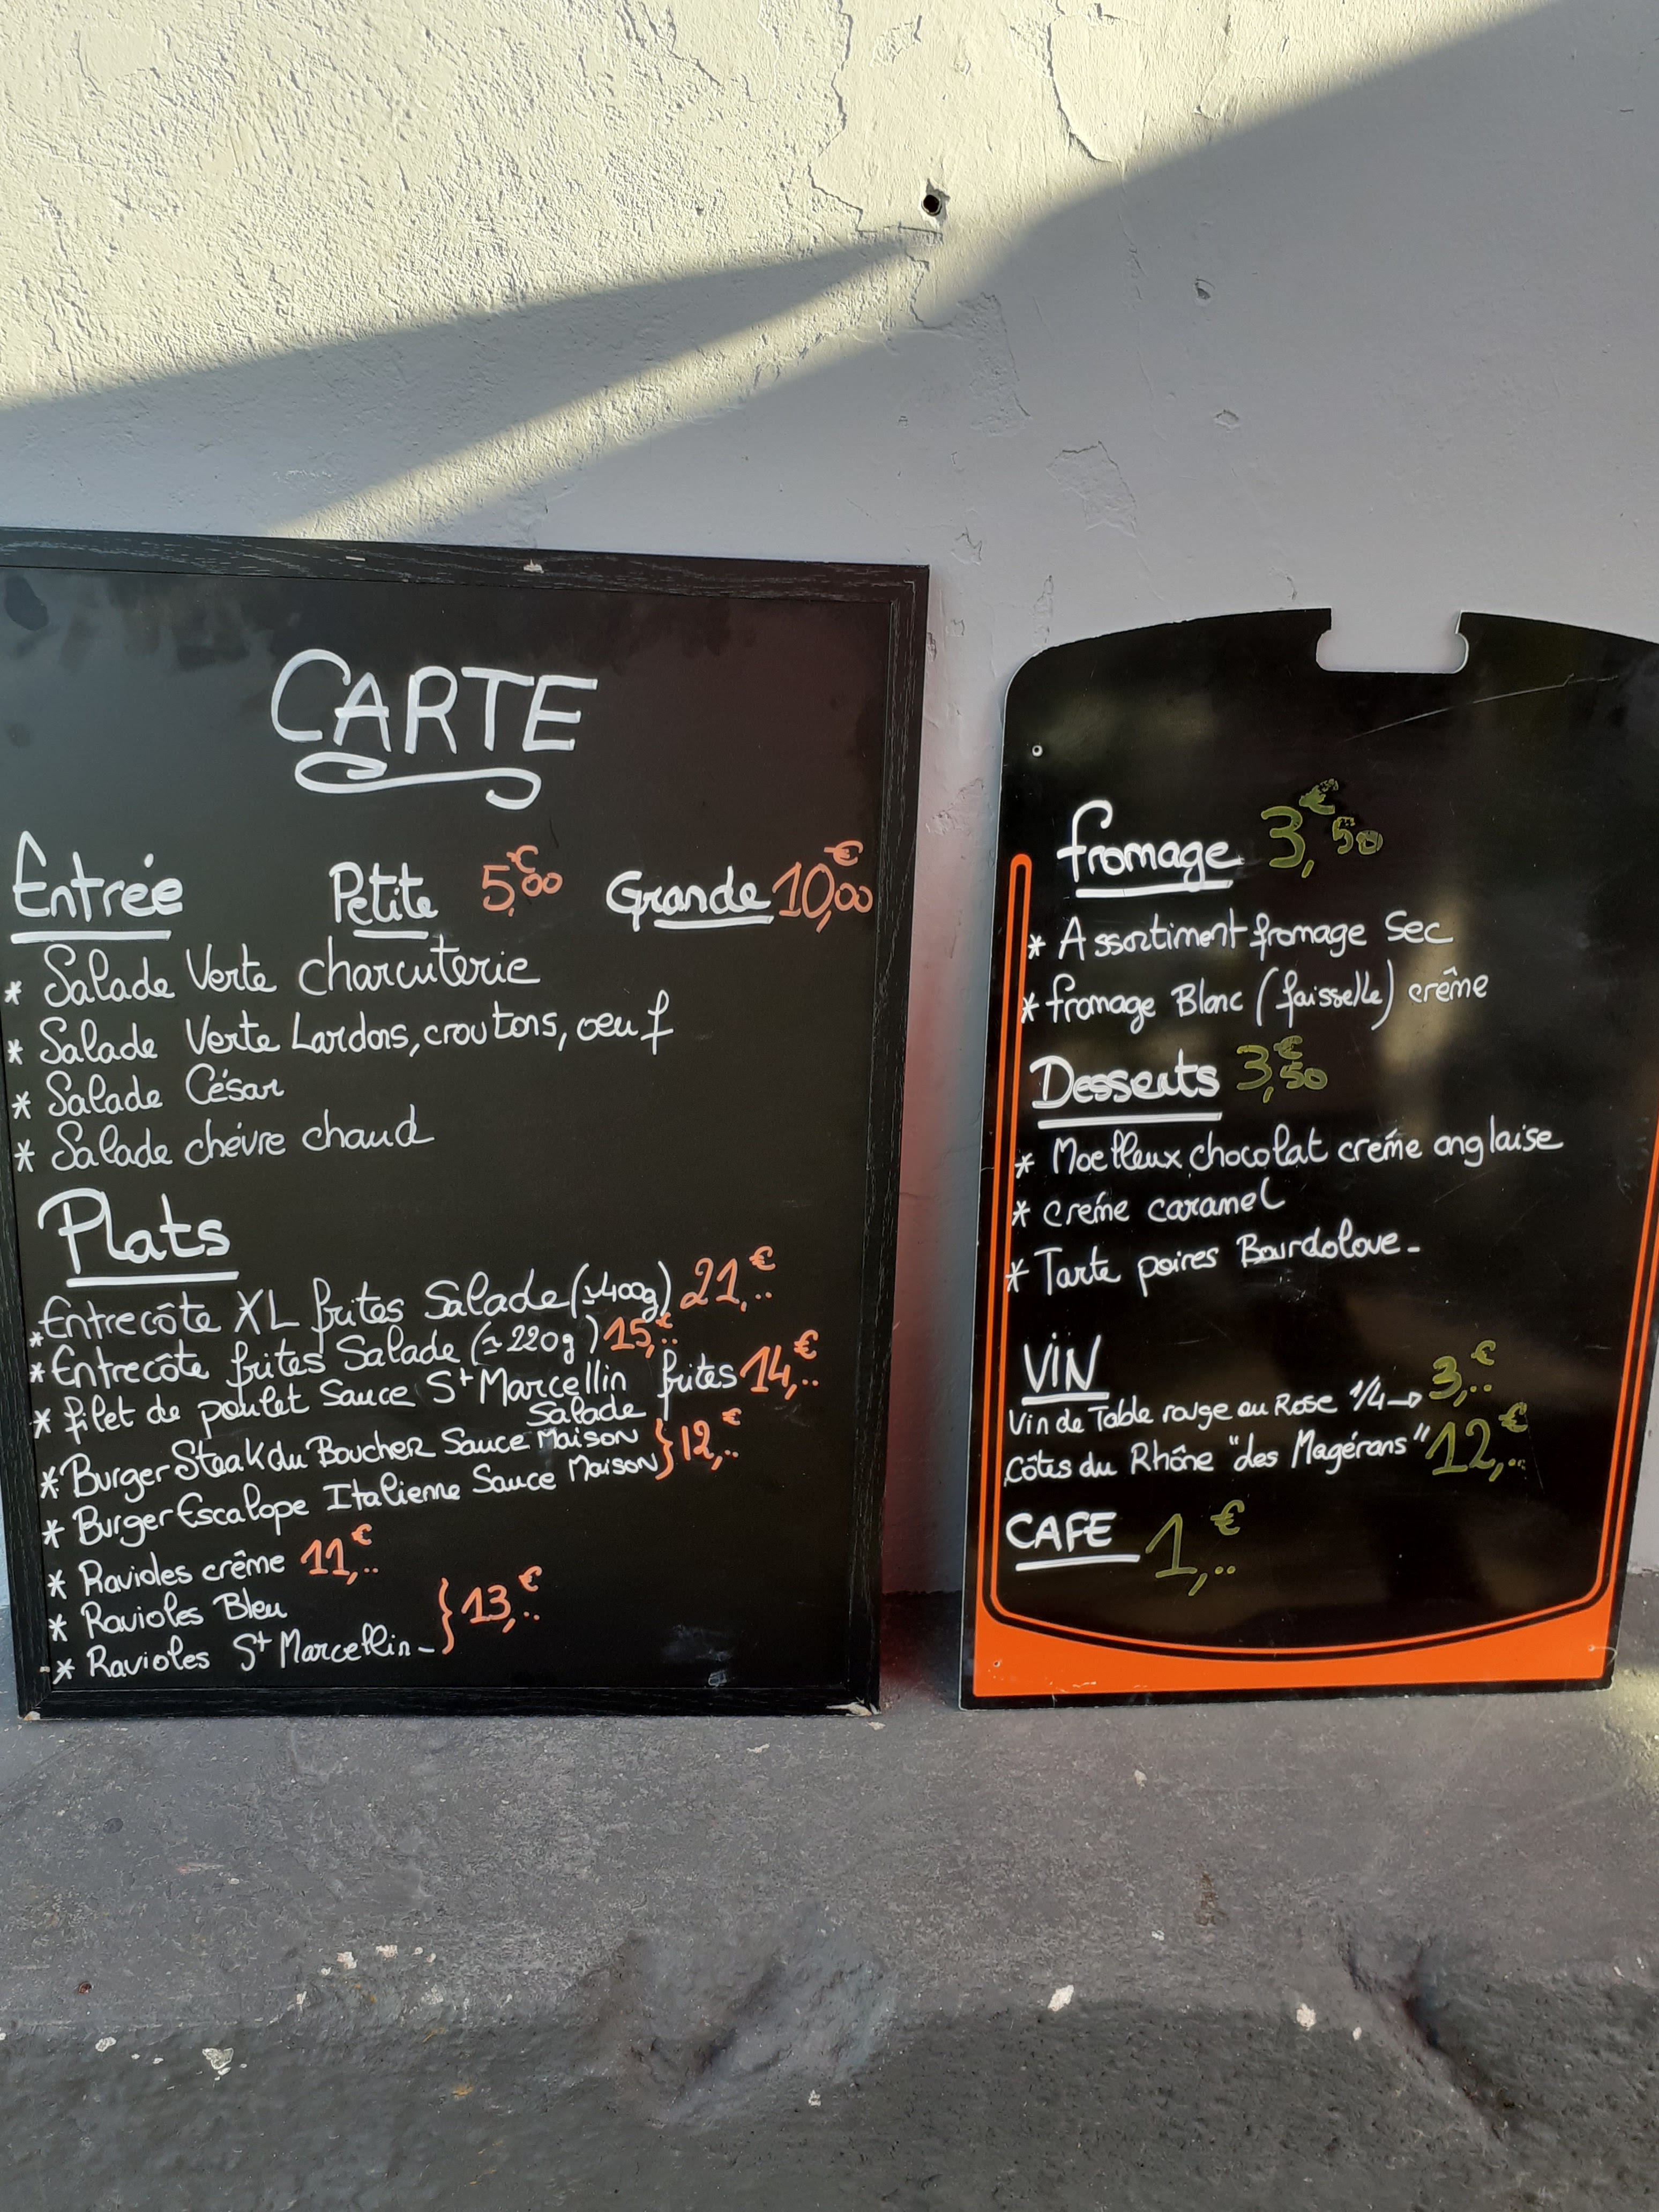 CARTE
Entrée Petite 5,€00 Grande 10,€00
* Salade Verte charcuterie
* Salade Verte Lardons, croutons, oeuf
* Salade César
* Salade chévre chaud
Plats
* Entrecôte XL frites Salade (≃400g) 21,€..
* Entrecôte frites Salade (≃220g) 15,€..
* filet de poulet Sauce St Marcellin frites 14,€..
Salade
* Burger Steak du Boucher Sauce Maison } 12,€..
* Burger Escalope Italienne Sauce Maison
* Ravioles crême 11,€..
* Ravioles Bleu } 13,€..
* Ravioles St Marcellin -
fromage 3,€50
* Assortiment fromage Sec
* fromage Blanc (faisselle) crême
Desserts 3,€50
* Moelleux chocolat créme anglaise
* créme caramel
* Tarte poires Bourdoloue -
VIN
Vin de Table rouge ou Rose 1/4 → 3,€..
Côtes du Rhône "des Magérans" 12,€..
CAFE 1,€..